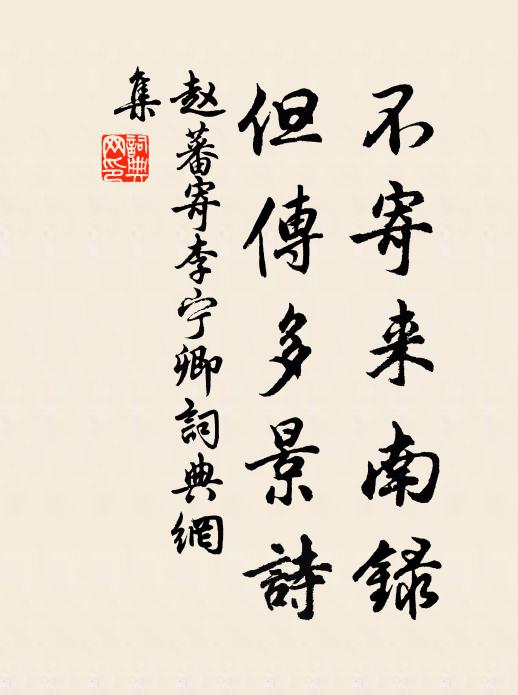 不寄来南録
但傳多景詩
赵蕃寄李宁卿詞典網
集
詞典
网印